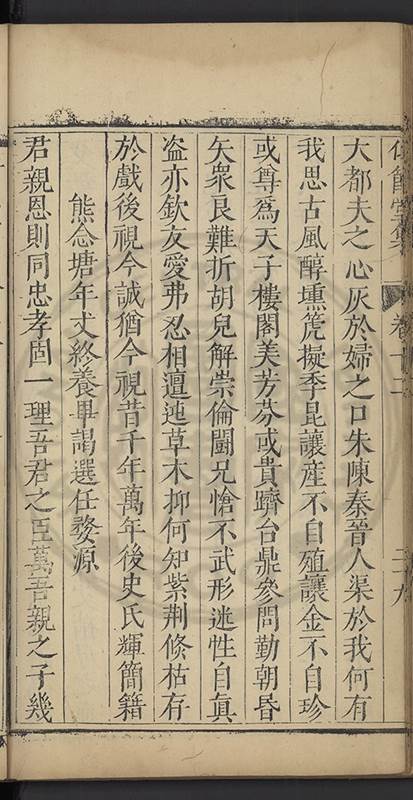 卷十二
大都夫之心灰於婦之口朱陳秦晉人渠於我何有
我思古風醇壎箎擬季昆讓産不自殖讓金不自珍
或尊爲天子樓閣美芳芬或貴躋台鼎參問勤朝昏
矢衆艮難折胡兒解崇倫鬩兄愴不武形迷性自眞
盗亦欽友愛弗忍相邅迍草木抑何知紫荆條枯存
於戲後視今誠猶今視昔千年萬年後史氏輝簡籍
熊念塘年丈終養畢謁選任婺源
君親恩則同忠孝固一理吾君之臣萬吾親之子幾